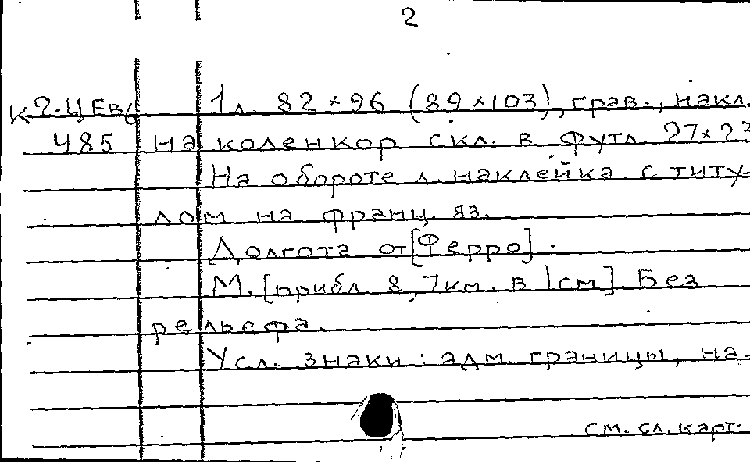 2
К 2-ЦЕв 1 л. 82×96 (89×103), грав., накл.
485 на коленкор скл. в футл. 27×23
На обороте л. наклейка с титу-
лом на франц. яз.
Долгота от [Ферро].
М. [прибл. 8,7км. в 1см] Без
рельефа.
Усл. знаки: адм. границы, на-
см. сл. карт.